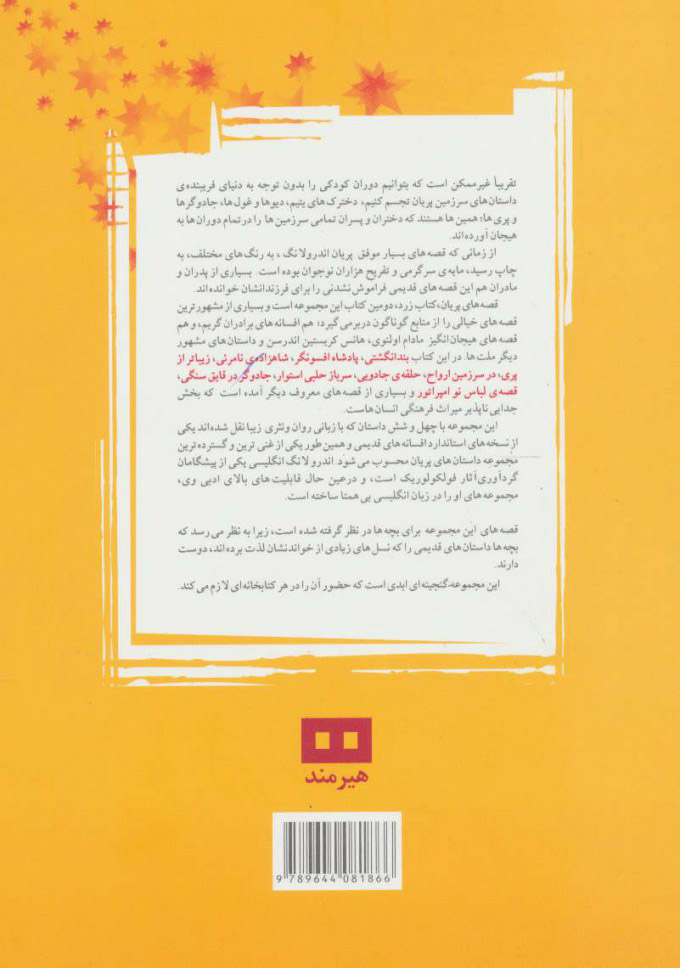 تقریباً غیرممکن است که بتوانیم دوران کودکی را بدون توجه به دنیای فریبنده‌ی
داستان‌های سرزمین پریان تجسم کنیم، دخترک‌های یتیم، دیوها و غول‌ها، جادوگرها
و پری‌ها؛ همین‌ها هستند که دختران و پسران تمامی سرزمین‌ها را در تمام دوران‌ها به
هیجان آورده‌اند.
از زمانی که قصه‌های بسیار موفق پریان اندرولانگ، به رنگ‌های مختلف، به
چاپ رسید، مایه‌ی سرگرمی و تفریح هزاران نوجوان بوده است. بسیاری از پدران و
مادران هم این قصه‌های قدیمی فراموش نشدنی را برای فرزندانشان خوانده‌اند.
قصه‌های پریان،کتاب زرد، دومین کتاب این مجموعه است و بسیاری از مشهورترین
قصه‌های خیالی را از منابع گوناگون دربرمی‌گیرد؛ هم افسانه‌های برادران گریم، و هم
قصه‌های هیجان‌انگیز مادام اولنوی، هانس کریستین اندرسن و داستان‌های مشهور
دیگر ملت‌ها. در این کتاب بندانگشتی، پادشاه افسونگر، شاهزاده‌ی نامرئی، زیباتر از
پری، در سرزمین ارواح، حلقه‌ی جادویی، سرباز حلبی استوار، جادوگر در قایق سنگی،
قصه‌ی لباس نو امپراتور و بسیاری از قصه‌های معروف دیگر آمده است که بخش
جدایی ناپذیر میراث فرهنگی انسان‌هاست.
این مجموعه با چهل و شش داستان که با زبانی روان ونثری زیبا نقل شده‌اند یکی
از نسخه‌های استاندارد افسانه‌های قدیمی و همین طور یکی از غنی ترین و گسترده ترین
مجموعه داستان‌های پریان محسوب می‌شود. اندرو لانگ انگلیسی یکی از پیشگامان
گردآوری آثار فولکولوریک است، و درعین حال قابلیت‌های بالای ادبی وی،
مجموعه‌های او را در زبان انگلیسی بی همتا ساخته است.
قصه‌های این مجموعه برای بچه‌ها در نظر گرفته شده است، زیرا به نظر می‌رسد که
بچه‌ها داستان‌های قدیمی را که نسل‌های زیادی از خواندنشان لذت برده‌اند، دوست
دارند.
این مجموعه،گنجینه‌ای ابدی است که حضور آن را در هر کتابخانه‌ای لازم می‌کند.
هیرمند
9 789644 081866